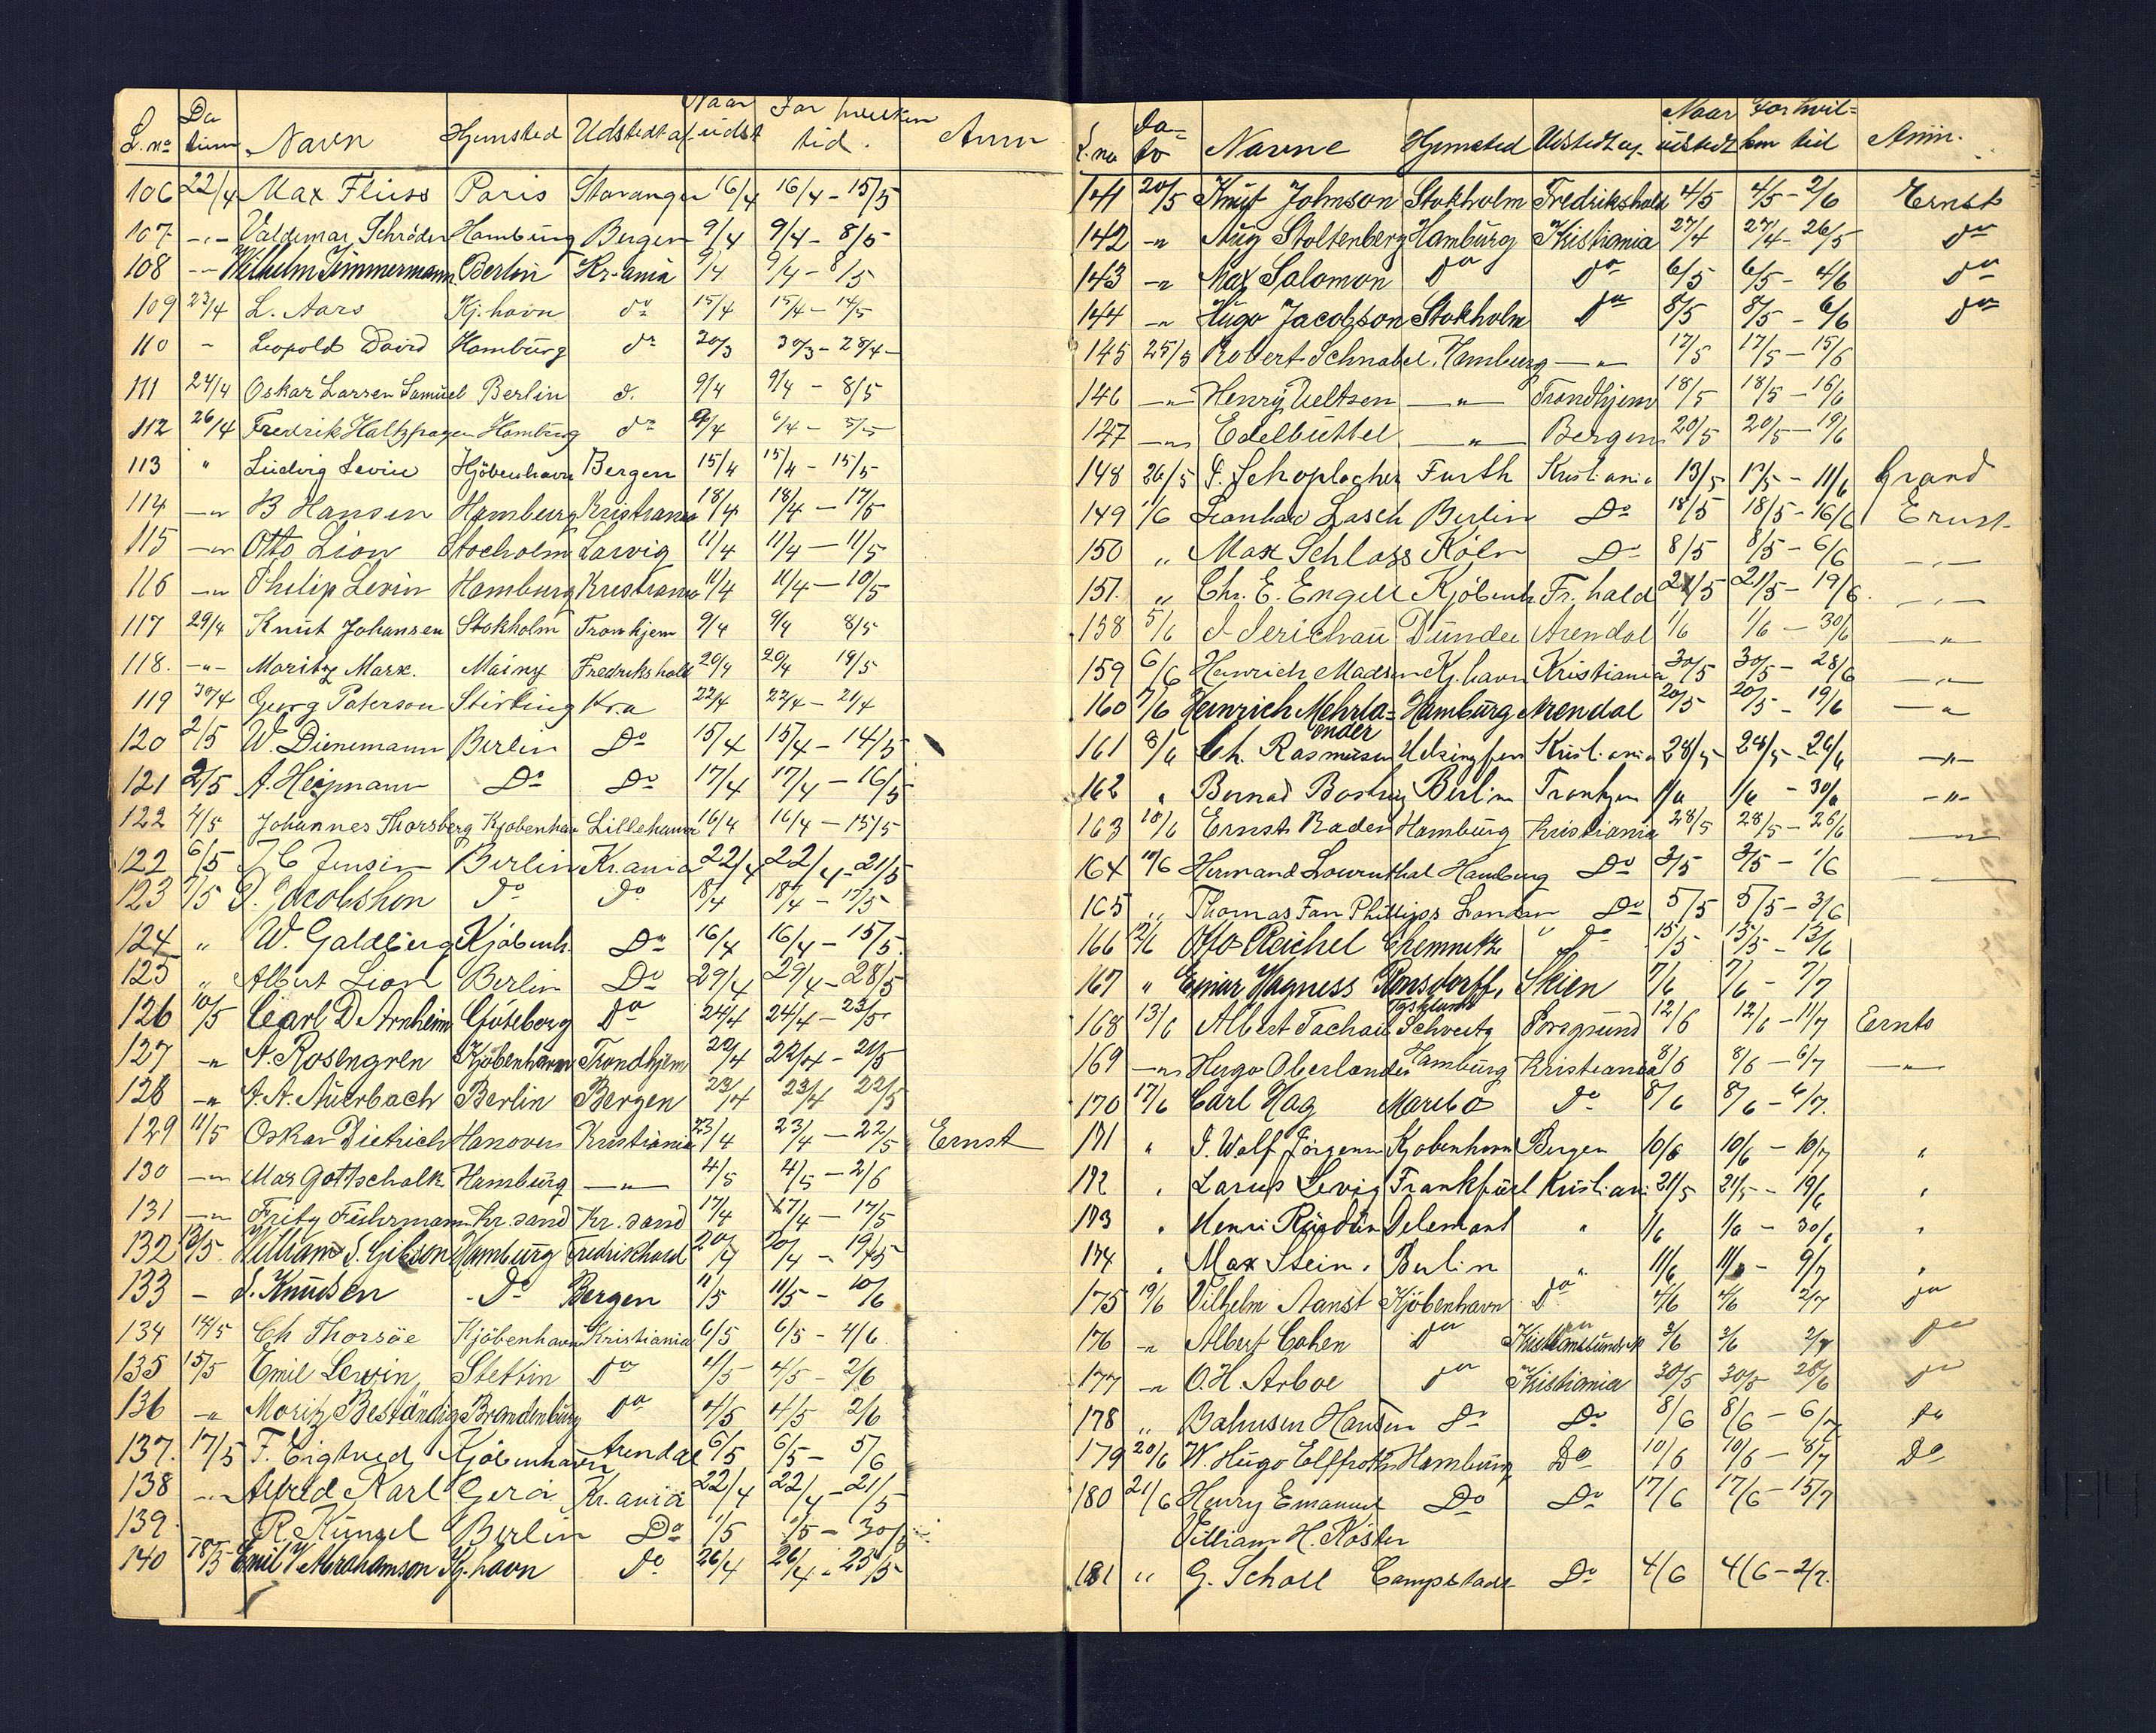 L.no Datum Navn Hjemsted Udstedt af Naar udst For hvilken tid. Anm
106 22/4 Max Fliiss Paris Stavanger 16/4 16/4 - 15/5
107 -„- Valdemar Schröder Hamburg Bergen 9/4 9/4 - 8/5
108 -„- Wilhelm Zimmermann Berlin Kr-ania 9/4 9/4 - 8/5
109 23/4 L. Aars Kj.havn do 15/4 15/4 - 14/5
110 - Leopold David Hamburg do 30/3 30/3 - 28/4
111 24/4 Oskar Larsen Samuel Berlin d. 9/4 9/4 - 8/5
112 26/4 Fredrik Hamburg do 6/4 - 5/5
113 " Ludvig Levin Kjöbenhavn Bergen 15/4 15/4 - 15/5
114 -„- B Hansen Hamburg Kristiania 18/4 18/4 - 17/5
115 -„- Otto Lion Stocholm Larvig 11/4 11/4 - 11/5
116 -„- Philip Levin Hamburg Kristiania 11/4 11/4 - 10/5
117 29/4 Knut Johansen Stokholm Tronhjem 9/4 9/4 8/5
118. -„- Moritz Marx. Mainz Fredrikshald 20/4 20/4 19/5
119 30/4 Georg Paterson Stirling Kr.a 22/4 22/4 - 21/4
120 2/5 W. Dienemann Berlin Do 15/4 15/4 - 14/5
121 2/5 A. Heymann Do Do 17/4 17/4 - 16/5
122 4/5 Johannes Thorsberg Kjobenhav Lillehamr 16/4 16/4 - 15/5
122 6/5 J C Jensen Berlin Kr.ania 22/4 22/4 - 21/5
123 7/5 Jacobshon do do 18/4 18/4 - 17/5
124 „ W. Goldberg Kjöbenh. Do 16/4 16/4 - 15/5
125 „ Albert Lion Berlin Do 29/4 29/4 - 28/5
126 10/5 Carl D Arnheim Göteborg Do 24/4 24/4 - 23/5
127 -„- A. Rosengren Kjöbenhavn Trondhjem 22/4 22/4 - 21/5
128 -„- A. A. Auerbach Berlin Bergen 23/4 23/4 22/5
129 11/5 Oskar Dietrich Hanover Kristiania 23/4 23/4 - 22/5 Ernst
130 -„- Max Gottschalk Hamburg -„- 4/5 4/5 - 2/6
131 -„- Fritz Fuhrmann Kr.sand Kr. sand 17/4 17/4 - 17/5
132 13/5 William S. Gibson Hamburg Fredrikhald 20/4 20/4 - 19/5
133 - S. Knudsen do Bergen 11/5 11/5 - 10/6
134 14/5 Ch Thorsöe Kjöbenhavn Kristiania 6/5 6/5 - 4/6
135 15/5 Emil Lewin, Stettin Do 4/5 4/5 - 2/6
136 -„- Moritz Beständig Brandenburg Do 4/5 4/5 2/6
137. 17/5 F. Eigtved Kjöbenhavn Arendal 6/5 6/5 - 5/6
138 -„- Alfred Karl Gera Kr.ania 22/4 22/4 - 21/5
139 R. Kungel Berlin Do 1/5 1/5 - 30/5
140 18/5 Emil V Abrahamson Kj.havn do 26/4 26/4 - 25/5
L.no Dato Navne Hjemsted Udstedt af Naar udstedt For hvilken tid Anm.
141 20/5 Knut Johnson Stokholm Fredrikshald 4/5 4/5 - 2/6 Ernst
142 -„- Aug Stoltenberg Hamburg Kristiania 27/4 27/4 - 26/5 do
143 -„- Max Salomon do do 6/5 6/5 - 4/6 do
144 -„- Hugo Jacobson Stokholm do 8/5 8/5 - 6/6 do
145 25/5 Robert Schnabel Hamburg -„- 17/5 17/5 - 15/6
146 -„- Henry Ueltsen -„- Trondhjem 18/5 18/5 - 16/6
147 -„- Edelbuttel -„- Bergen 20/5 20/5 - 19/6
148 26/5 Furth Kristiania 13/5 13/5 - 11/6 Grand
149 1/6 Leonhard Lasch Berlin Do 18/5 18/5 - 16/6 Ernst
150 „ Max Schloss Köln Do 8/5 8/5 - 6/6 -„-
151. „ Chr. E. Engell Kjöbenh Fr. hald 21/5 21/5 - 19/6. -„-
158 5/6 J Jerichau Dundee Arendal 1/6 1/6 - 30/6 -„-
159 6/6 Henrich Madsen Kj. havn Kristiania 30/5 30/5 - 28/6 -„-
160 7/6 Heinrich Mehrla= Hamburg Arendal 20/5 20/5 - 19/6 -„-
ender
161 8/6 Ch. Rasmussen Helsingfors Kristiania 28/5 28/5 - 26/6 -„-
162 „ Bernad Berlin Tronhjem 1/6 1/6 - 30/6 -„-
163 10/6 Ernst Baden Hamburg Kristiania 28/5 28/5 - 26/6 -„-
164 10/6 Hermand Lowenthal Hamburg Do 3/5 3/5 - 1/6
165 „ Thomas Fan Phillips London Do 5/5 5/5 - 3/6
166 12/6 Otto Reichel Chemnitz do 15/5 15/5 - 13/6
167 " Einar Hagness Ronsdorff, Skien 7/6 7/6 - 7/7
Tyskland
168 13/6 Albert Tachau Schveitz Porsgrund 12/6 12/6 - 11/7 Ernts
169 -„- Hugo Oberlander Hamburg Kristiania 8/6 8/6 - 6/7 -„-
170 17/6 Carl Hag Maribo do 8/6 8/6 - 6/7.
171 " J. Wolf Jörgensen Kjobenhavn Bergen 10/6 10/6 - 10/7 "
172 " Larus Levig Frankfurt Kristiani 21/5 21/5 - 19/6 "
173 " Henri Delemont " 1/6 1/6 - 30/6 "
174 „ Max Stein. Berlin " 11/6 11/6 - 9/7 "
175 19/6 Vilhelm Aanst Kjöbenhavn do 4/6 4/6 2/7 do
176 -„- Albert Cohen do Kristianssund 3/6 3/6 2/7 do
177 -„- O. H. Arboe do Kristiania 30/5 30/5 28/6 do
178 „ Bahnsen Hansen Do Do 8/6 8/6 - 6/7 do
179 20/6 W. Hugo Elffroth Hamburg Do 10/6 10/6 - 8/7 Do
180 21/6 Henry Emanuel Do Do 17/6 17/6 - 15/7
William H. Köster
181 „ G. Scholl Campstadt Do 4/6 4/6 - 2/7.